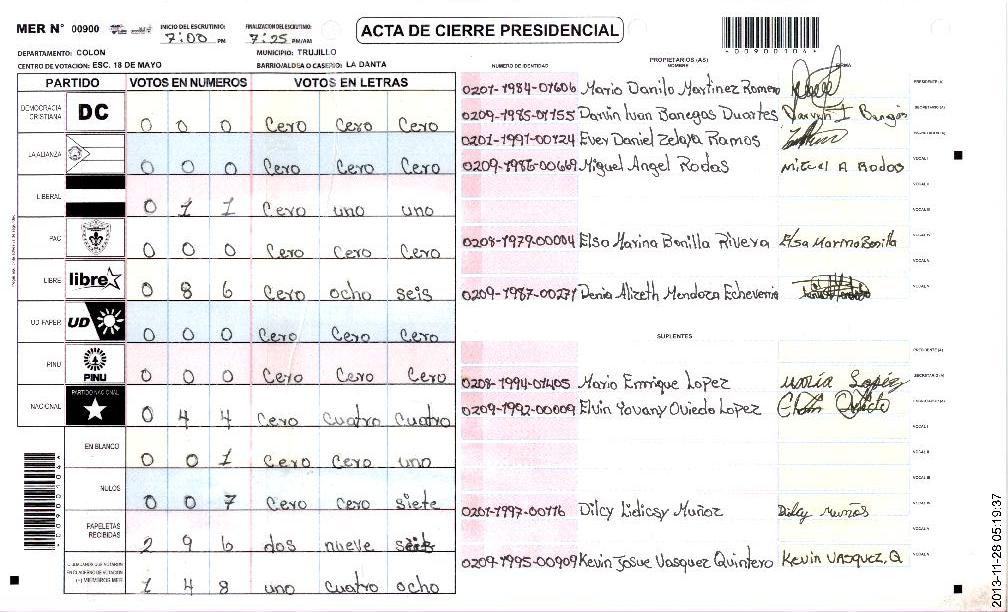 MER N° 00900
INICIO DEL ESCRUTINIO: 7:00 PM
FINALIZACION DEL ESCRUTINIO: 7:25 PM/AM
ACTA DE CIERRE PRESIDENCIAL
*00900104*
DEPARTAMENTO: COLON
MUNICIPIO: TRUJILLO
CENTRO DE VOTACION: ESC. 18 DE MAYO
BARRIO/ALDEA O CASERIO: LA DANTA
PARTIDO VOTOS EN NUMEROS VOTOS EN LETRAS
DEMOCRACIA CRISTIANA DC 0 0 0 Cero Cero Cero
LA ALIANZA 0 0 0 Cero Cero Cero
LIBERAL 0 1 1 Cero uno uno
PAC 0 0 0 Cero Cero Cero
LIBRE libre 0 8 6 Cero ocho seis
UD FAPER UD 0 0 0 Cero Cero Cero
PINU PINU 0 0 0 Cero Cero Cero
NACIONAL PARTIDO NACIONAL 0 4 4 Cero Cuatro Cuatro
EN BLANCO 0 0 1 Cero Cero uno
NULOS 0 0 7 Cero Cero siete
PAPELETAS RECIBIDAS 2 9 6 dos nueve seis
CIUDADANOS QUE VOTARON EN CUADERNO DE VOTACION (+) MIEMBROS MER 1 4 8 uno cuatro ocho
PROPIETARIOS (AS)
NUMERO DE IDENTIDAD NOMBRE FIRMA
0201-1984-01606 Mario Danilo Martinez Romero PRESIDENTE (A)
0209-1985-01155 Darvin Ivan Banegas Duartes SECRETARIO (A)
0201-1991-00124 Ever Daniel Zelaya Ramos
0209-1986-00669 Miguel Angel Rodas Miguel A Rodas VOCAL I
VOCAL II
VOCAL III
0208-1979-00084 Elsa Marina Bonilla Rivera Elsa Marina Bonilla VOCAL IV
VOCAL V
0209-1987-00231 Denia Alizeth Mendoza Echeverria VOCAL VI
SUPLENTES
PRESIDENTE (A)
0208-1994-01405 Mario Enrrique Lopez maría Lopéz SECRETARIO (A)
0209-1992-00009 Elvin Yovany Oviedo Lopez Elvin Oviedo
VOCAL I
VOCAL II
VOCAL III
0201-1997-00116 Dilcy Lidicsy Muñoz Dilcy Muños VOCAL IV
VOCAL V
0209-1995-00909 Kevin Josue Vasquez Quintero KEVIN VASQUEZ, Q VOCAL VI
*00900104*
2013-11-28 05:19:37